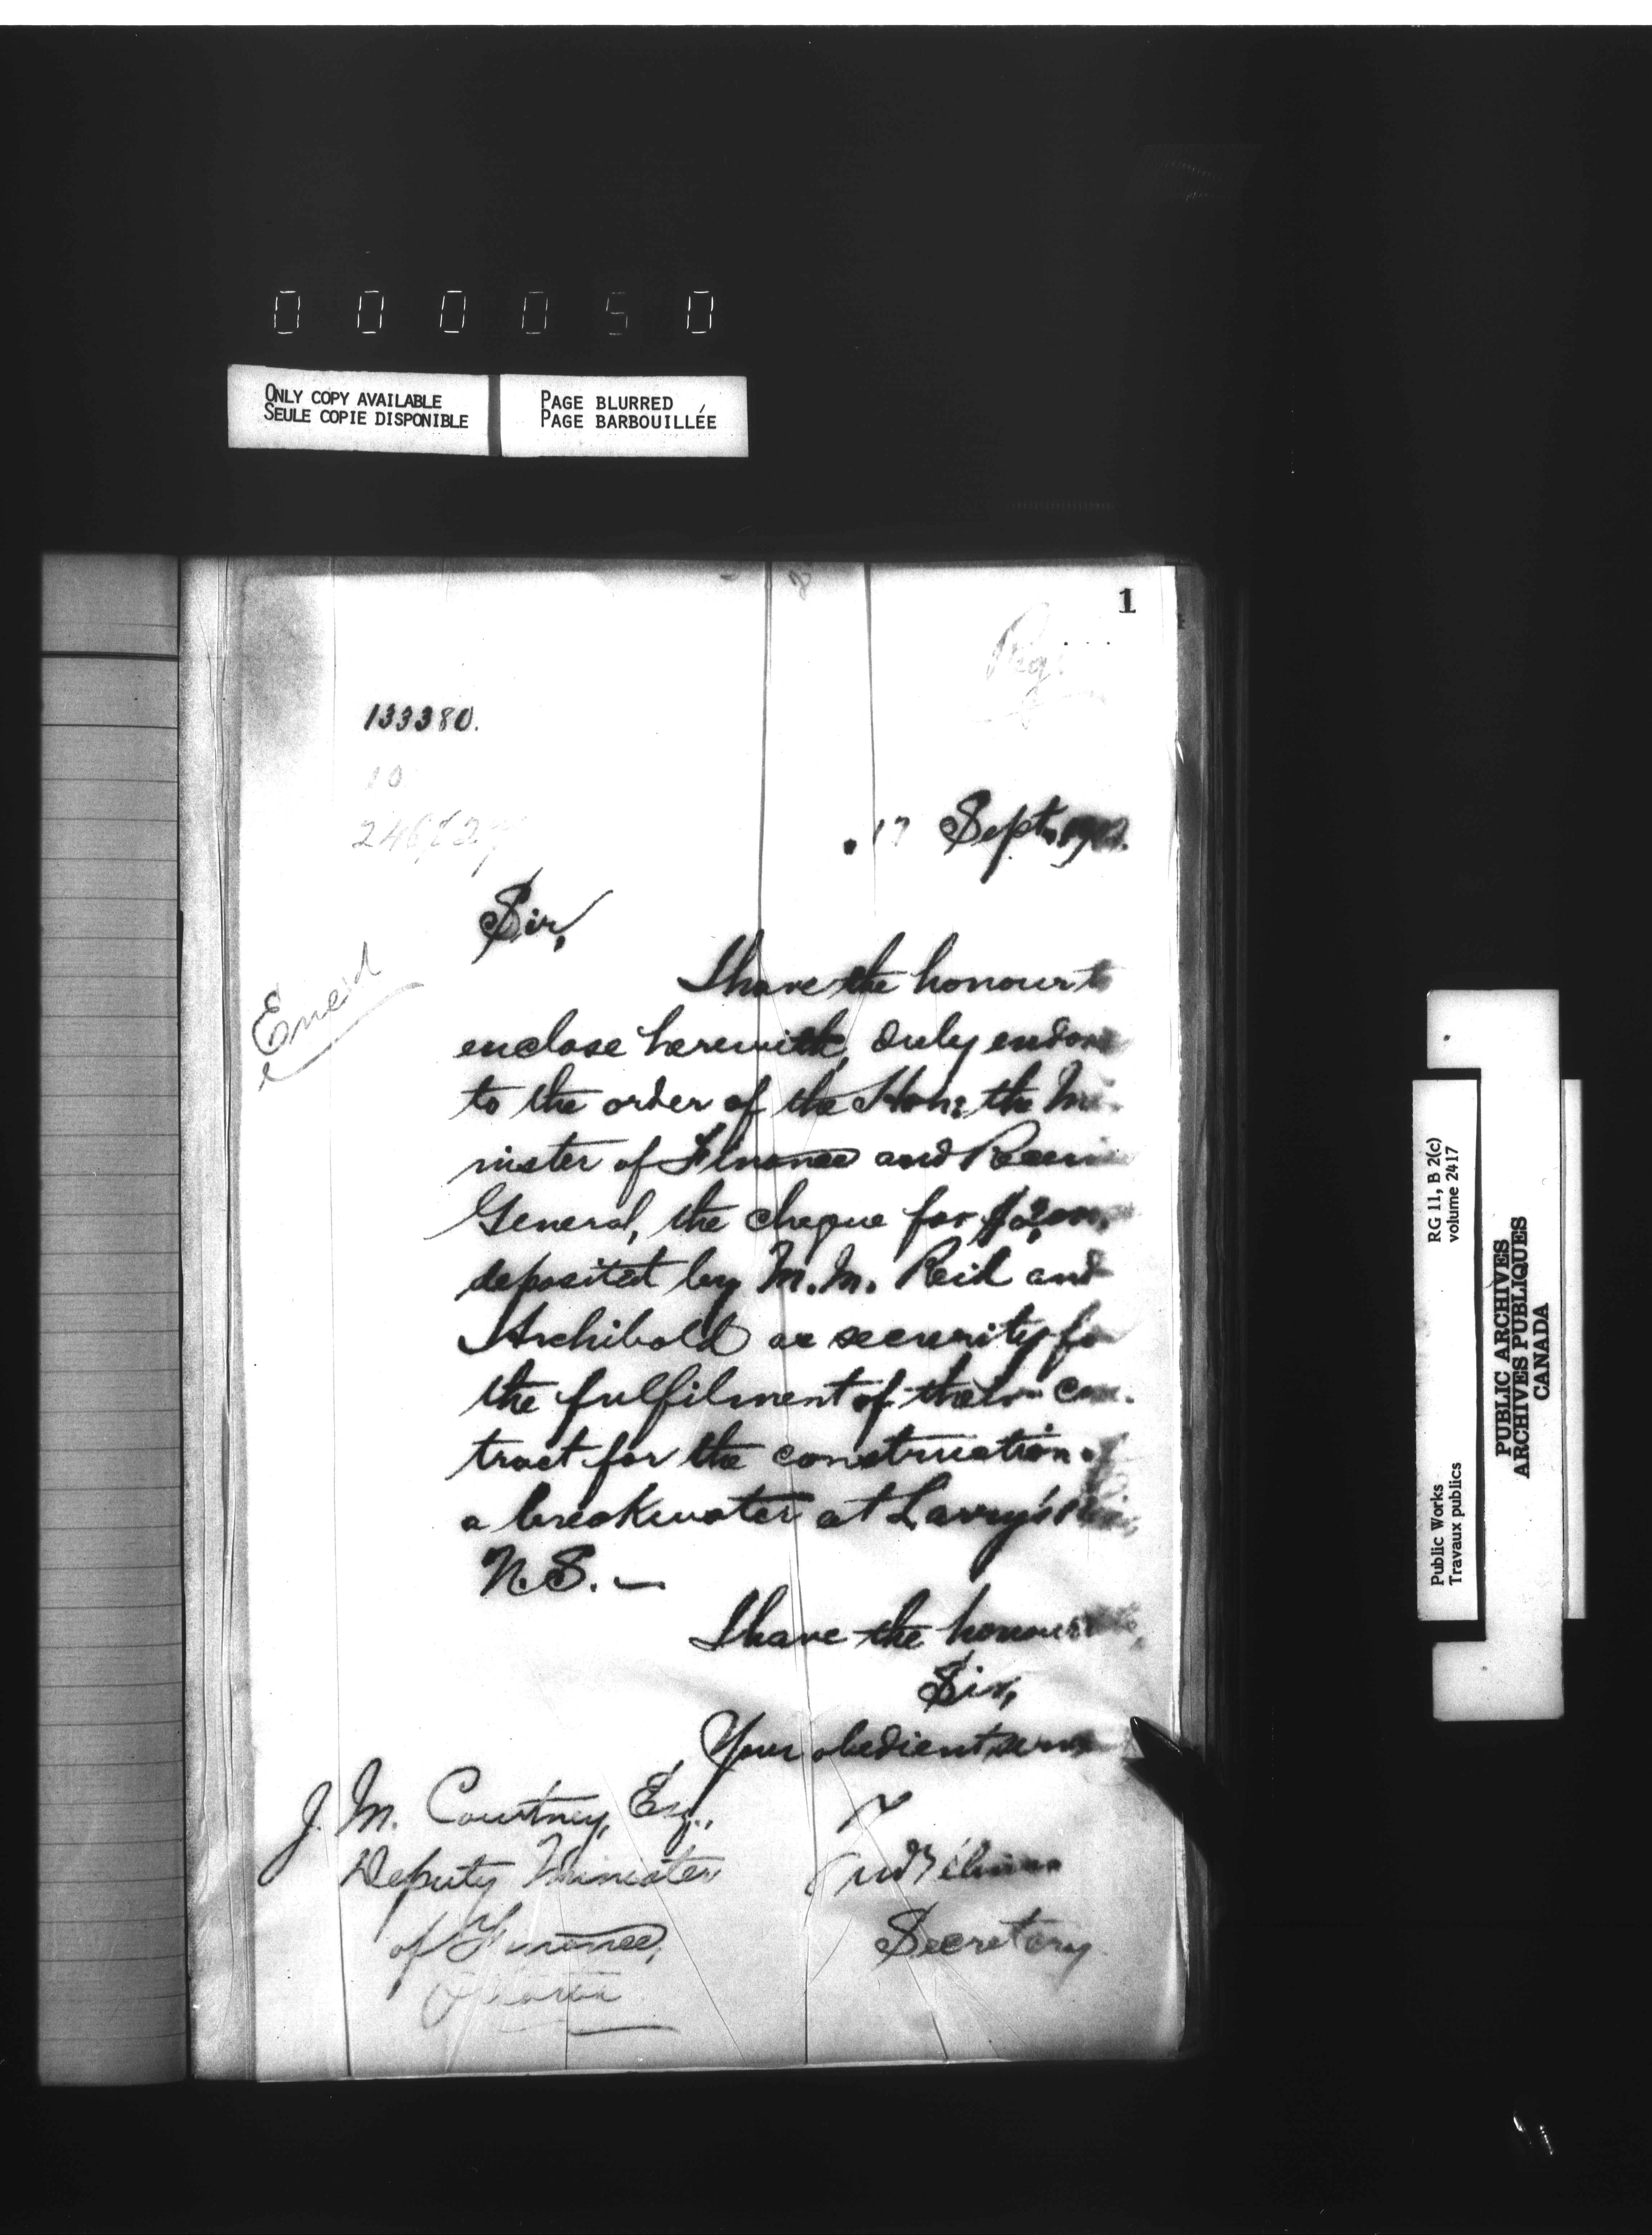 000050
ONLY COPY AVAILABLE
SEULE COPIE DISPONIBLE
PAGE BLURRED
PAGE BARBOUILLÉE
1
133380.
17 Sept.
Sir,
I have the honour to
enclose herewith, duly
to the order of the Hon: the Mi-
nister of Finance and
General, the cheque for
deposited by M.M. Reid and
Archibald as security for
the fulfilment of their con-
tract for the construction of
a breakwater at Larry's
N.S. —
I have the honour
Sir,
Your obedient
J. M. Courtney, Esq.,
Deputy Minister
of Finance,
Ottawa
Secretary
Public Works
Travaux publics
RG 11, B 2(c)
volume 2417
PUBLIC ARCHIVES
ARCHIVES PUBLIQUES
CANADA